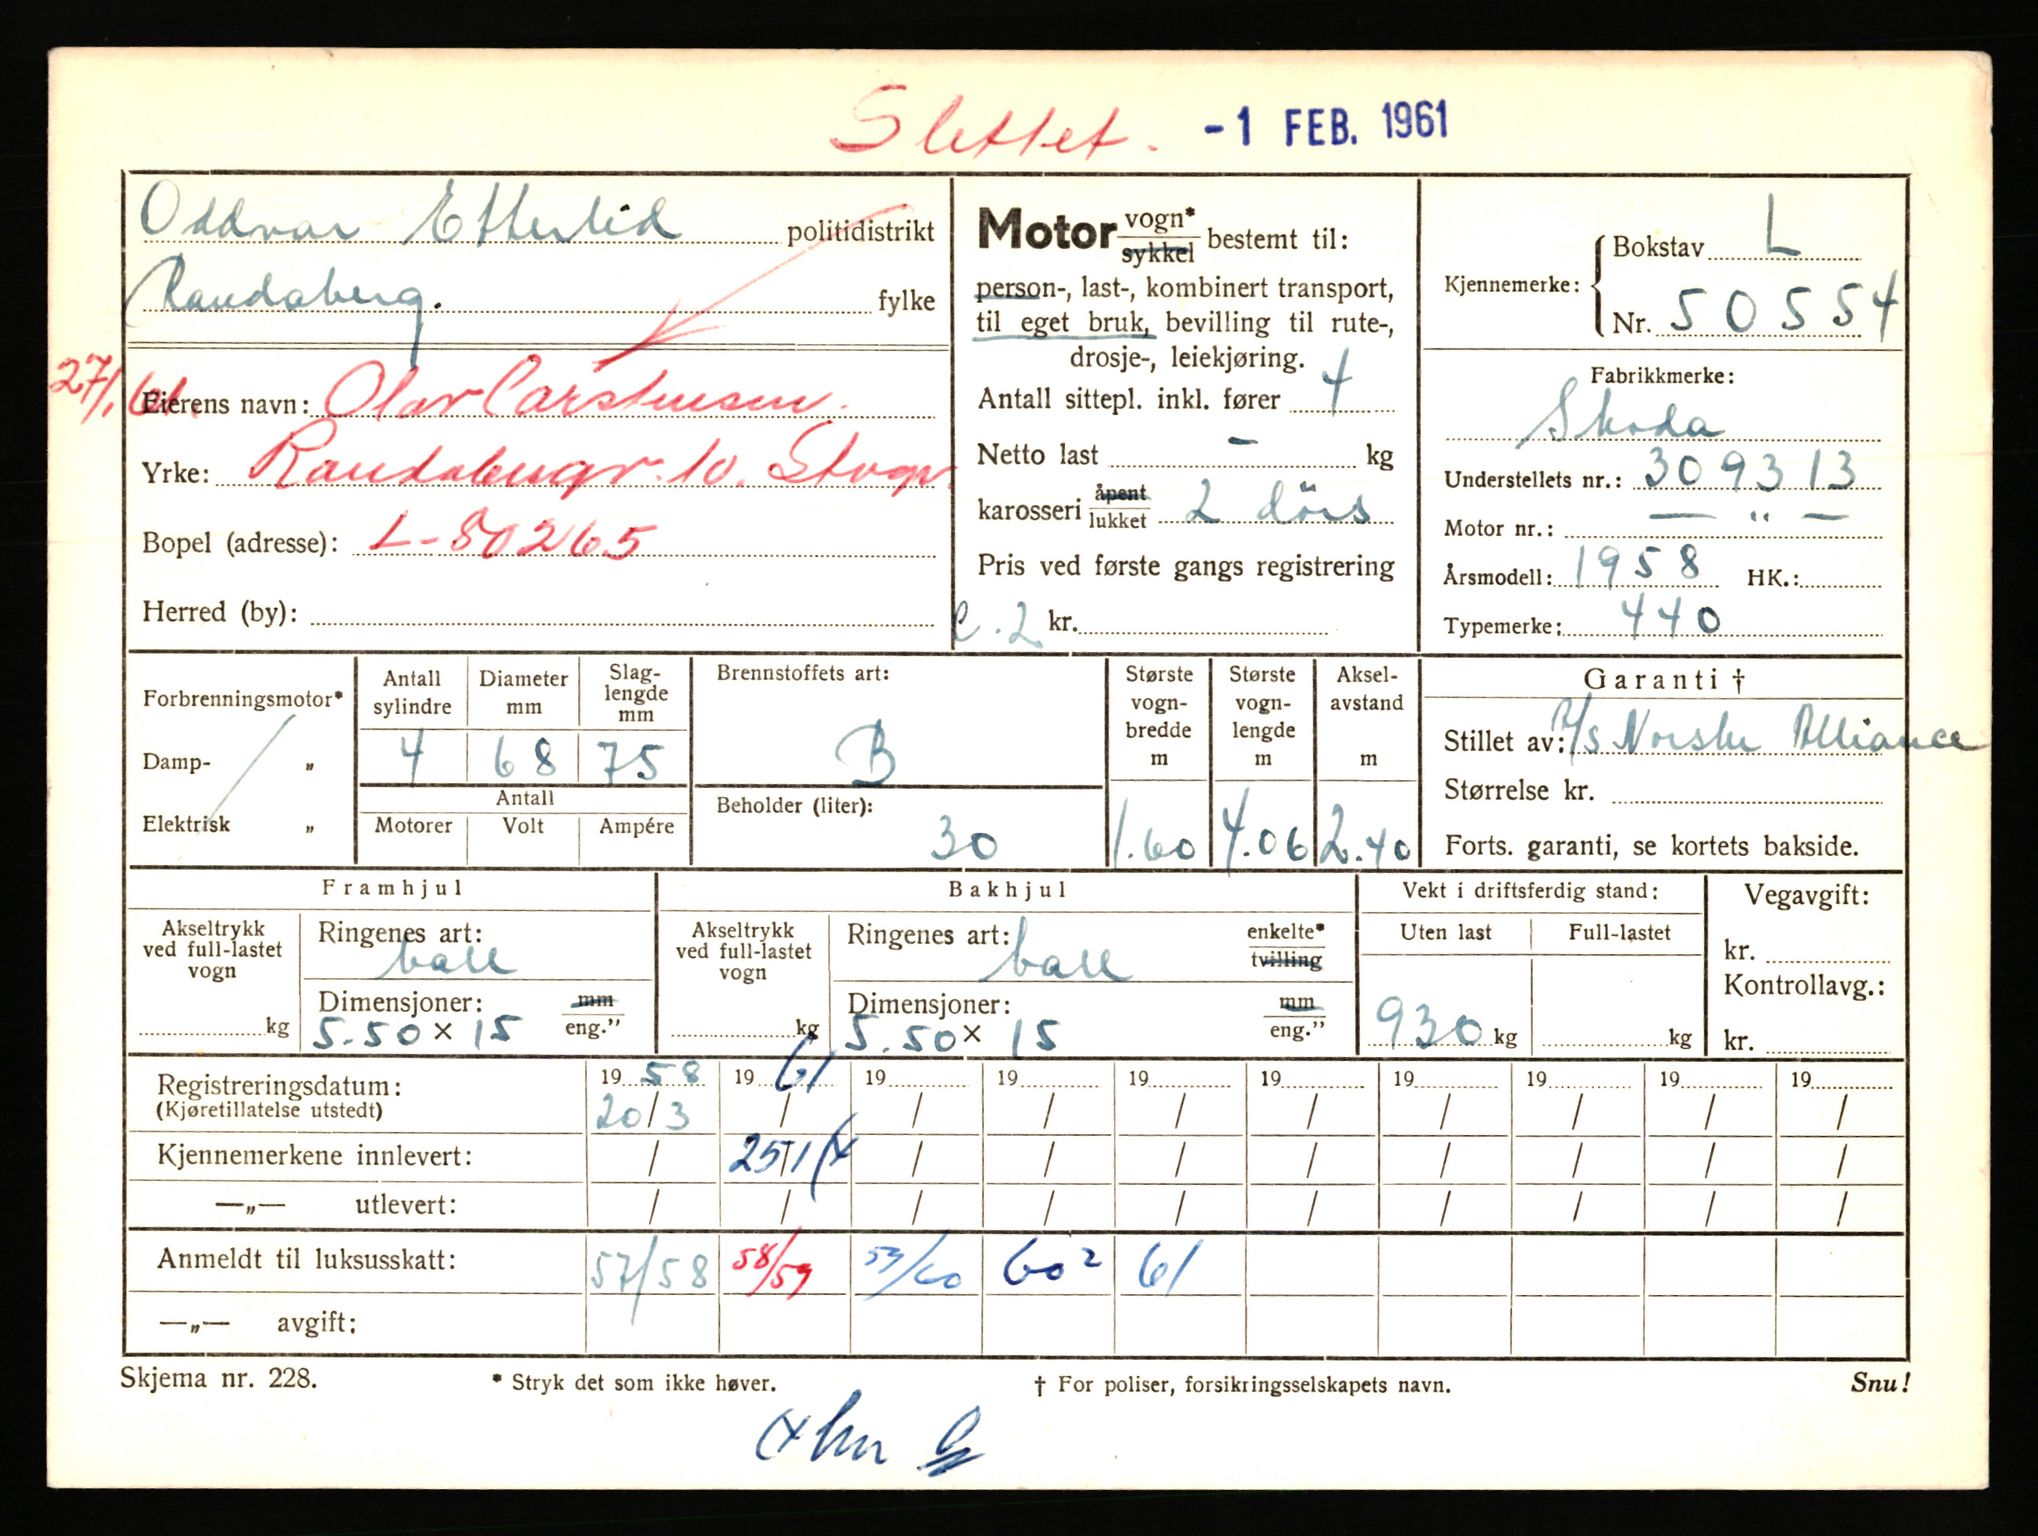 Slettet. -1 FEB. 1961
Oddvar Etterlid politidistrikt
Randaberg. fylke
27/1 61. Eierens navn: Olav Carstensen.
Yrke: Randabergv. 10. Stvgr.
Bopel (adresse): L-80265
Herred (by):
Motor vogn* sykkel bestemt til:
person-, last-, kombinert transport,
til eget bruk, bevilling til rute-,
drosje-, leiekjøring.
Antall sittepl. inkl. fører 4
Netto last - kg
karosseri åpent lukket 2 dörs
Pris ved første gangs registrering
c.2 kr.
Kjennemerke: Bokstav L
Nr. 50554
Fabrikkmerke:
Skoda
Understellets nr.: 309313
Motor nr.: — " —
Årsmodell: 1958 HK.:
Typemerke: 440
Forbrenningsmotor*
Damp- „
Elektrisk „
Antall sylindre Diameter mm Slag-lengde mm
4 68 75
Antall
Motorer Volt Ampére
Brennstoffets art:
B
Beholder (liter):
30
Største vogn-bredde m
1.60
Største vogn-lengde m
4.06
Aksel-avstand m
2.40
Garanti †
Stillet av: A/S Norske Alliance
Størrelse kr.
Forts. garanti, se kortets bakside.
Framhjul
Akseltrykk ved full-lastet vogn
kg
Ringenes art:
ball
Dimensjoner: mm
5.50 x 15 eng.”
Bakhjul
Akseltrykk ved full-lastet vogn
kg
Ringenes art: ball enkelte* tvilling
Dimensjoner: mm
5.50 x 15 eng.”
Vekt i driftsferdig stand:
Uten last Full-lastet
930 kg kg
Vegavgift:
kr.
Kontrollavg.:
kr.
Registreringsdatum: 19 58 19 61 19 19 19 19 19 19 19 19
(Kjøretillatelse utstedt) 20/3 / / / / / / / / /
Kjennemerkene innlevert: / 25/1 x / / / / / / / /
—„— utlevert: / / / / / / / / / /
Anmeldt til luksusskatt: 57/58 58/59 59/60 60² 61
—„— avgift:
Skjema nr. 228. * Stryk det som ikke høver. † For poliser, forsikringsselskapets navn. Snu!